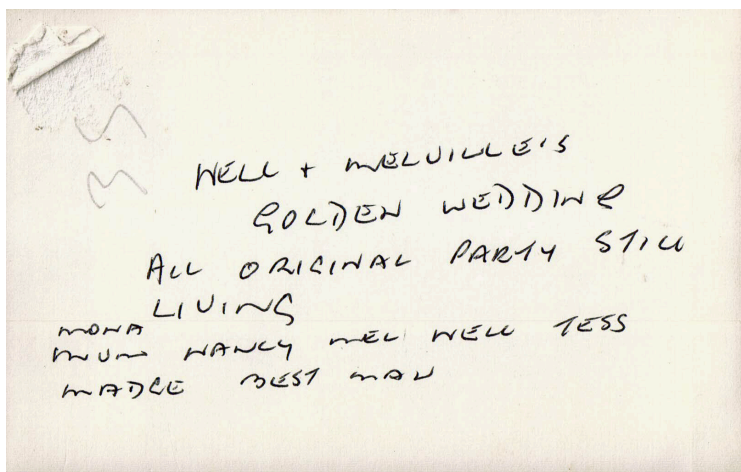 35
NELL + MELVILLE'S
GOLDEN WEDDING
ALL ORIGINAL PARTY STILL
LIVING
MONA
MUM NANCY MEL NELL TESS
MADGE BEST MAN